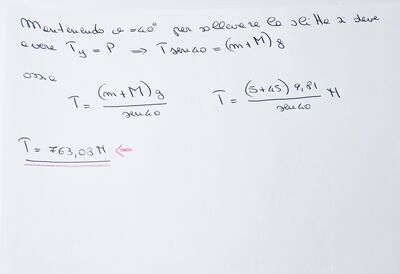 Mantenendo α = 40° per sollevare la slitta si deve
avere Ty = P ⇒ T sen 40 = (m+M) g
ossia
T = (m+M) g / sen 40    T = (5+45) 9,81 / sen 40 N
T = 763,08 N ←